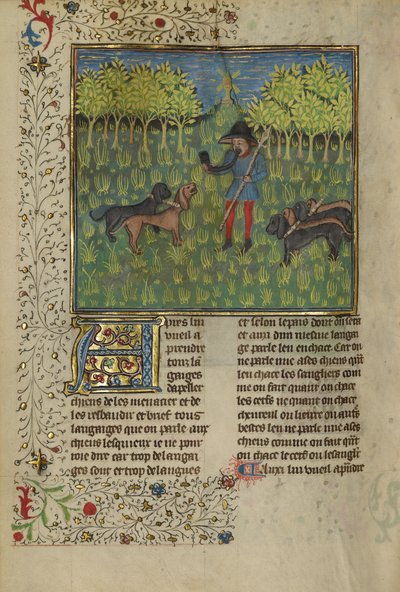 Apres lui
vueil a
prendre
touz la
gaiges
dapeller
chiens de les menacier et de
les resbaudir et brief tous
langaiges que on parle aux
chiens lesqueulx ie ne pour
roie dire car trop de langai
ges sont et trop de langues
et selon le pais dont on sera
et aux dun mesme langai
ge parle len en chace Car on
ne parle mie a ses chiens quant
len chace les sangliers com
me on fait quant on chace
les cerfs ne quant on chace
cheureul ou lieure ou autres
bestes len ne parle mie a ses
chiens comme on fait quant
on chace le cerf ou le sanglier
Aussi lui vueil aprendre